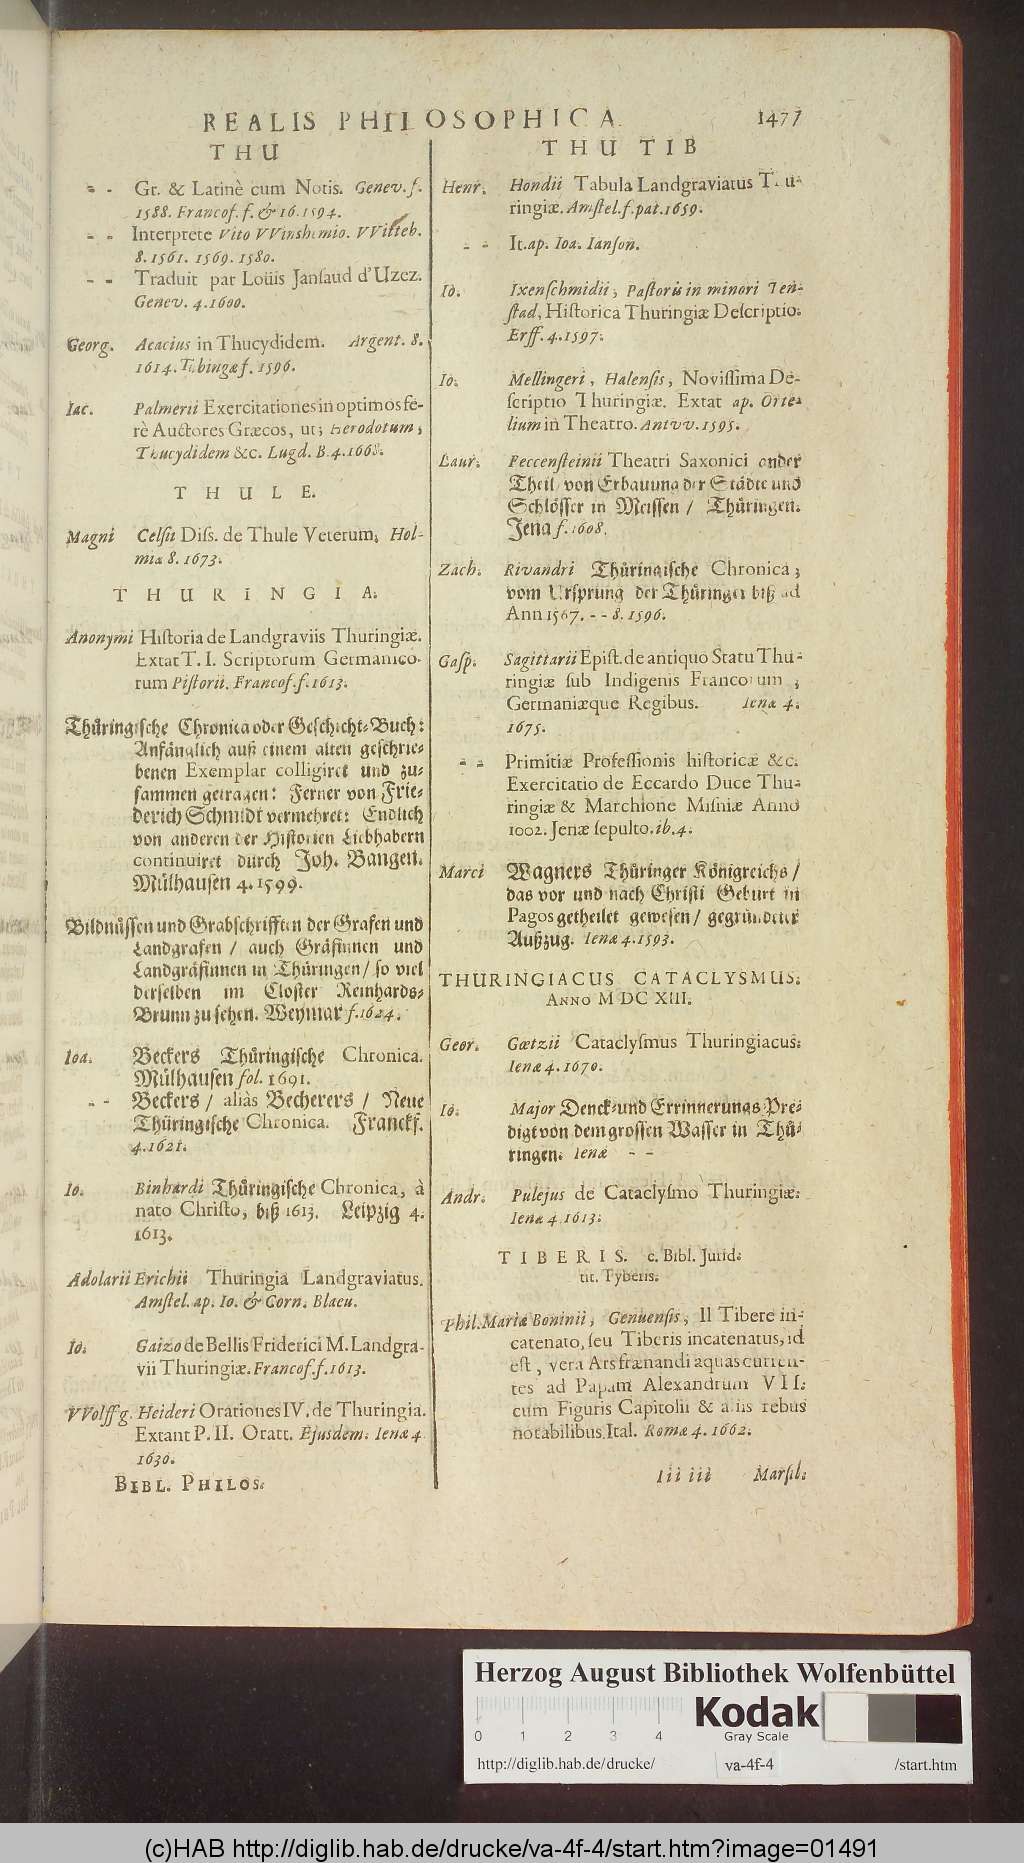 REALIS PHILOSOPHICA. 1477
THU
- - Gr. & Latinè cum Notis. Genev. f.
1588. Francof. f. & 16. 1594.
- - Interprete Vito VVinshemio. VVitteb.
8. 1561. 1569. 1580.
- - Traduit par Loüis Janſaud d'Uzez.
Genev. 4. 1600.
Georg. Acacius in Thucydidem. Argent. 8.
1614. Tubingæ f. 1596.
Iac. Palmerii Exercitationes in optimos fe-
rè Auctores Græcos, ut; Herodotum;
Thucydidem &c. Lugd. B. 4. 1668.
THULE.
Magni Celsii Diſſ. de Thule Veterum. Hol-
miæ 8. 1673.
THURINGIA.
Anonymi Hiſtoria de Landgraviis Thuringiæ.
Extat T. I. Scriptorum Germanico-
rum Piſtorii. Francof. f. 1613.
Thüringiſche Chronica oder Geſchicht-Buch:
Anfänglich auß einem alten geſchrie-
benen Exemplar colligiret und zu-
ſammen getragen: Ferner von Frie-
derich Schmidt vermehret: Endlich
von anderen der Hiſtorien Liebhabern
continuiret durch Joh. Bangen.
Mülhauſen 4. 1599.
Bildnüſſen und Grabſchrifften der Grafen und
Landgrafen / auch Gräfinnen und
Landgräfinnen in Thüringen / ſo viel
derſelben im Cloſter Reinhards-
Brunn zu ſehen. Weymar f. 1624.
Ioa. Beckers Thüringiſche Chronica.
Mülhauſen fol. 1691.
- - Beckers / aliàs Becherers / Neue
Thüringiſche Chronica. Franckf.
4. 1621.
Io. Binhardi Thüringiſche Chronica, à
nato Chriſto, biß 1613. Leipzig 4.
1613.
Adolarii Erichii Thuringia Landgraviatus.
Amſtel. ap. Io. & Corn. Blaeu.
Io. Gaizo de Bellis Friderici M. Landgra-
vii Thuringiæ. Francof. f. 1613.
VVolffg. Heideri Orationes IV. de Thuringia.
Extant P. II. Oratt. Ejusdem. Ienæ 4
1630.
BIBL. PHILOS.
THU TIB
Henr. Hondii Tabula Landgraviatus Thu-
ringiæ. Amſtel. f. pat. 1659.
- - It. ap. Ioa. Ianſon.
Io. Ixenſchmidii, Paſtoris in minori Jen-
ſtad, Hiſtorica Thuringiæ Deſcriptio.
Erff. 4. 1597.
Io. Mellingeri, Halenſis, Noviſſima De-
ſcriptio Thuringiæ. Extat ap. Orte-
lium in Theatro. Antvv. 1595.
Laur. Peccenſteinii Theatri Saxonici ander
Theil, von Erbauung der Städte und
Schlöſſer in Meiſſen / Thüringen.
Jena f. 1608.
Zach. Rivandri Thüringiſche Chronica;
vom Urſprung der Thüringer biß ad
Ann 1567. - - 8. 1596.
Caſp. Sagittarii Epiſt. de antiquo Statu Thu-
ringiæ ſub Indigenis Francorum;
Germaniæque Regibus. Ienæ 4.
1675.
- - Primitiæ Profeſſionis hiſtoricæ &c.
Exercitatio de Eccardo Duce Thu-
ringiæ & Marchione Miſniæ Anno
1002. Jenæ ſepulto. ib. 4.
Marci Wagners Thüringer Königreichs /
das vor und nach Chriſti Geburt in
Pagos getheilet geweſen / gegründeter
Außzug. Ienæ 4. 1593.
THURINGIACUS CATACLYSMUS.
ANNO MDCXIII.
Geor. Gœtzii Cataclyſmus Thuringiacus.
Ienæ 4. 1670.
Io. Major Denck- und Errinnerungs Pre-
digt von dem groſſen Waſſer in Thü-
ringen. Ienæ - -
Andr. Pulejus de Cataclyſmo Thuringiæ.
Ienæ 4. 1613.
TIBERIS. c. Bibl. Jurid.
tit. Tyberis.
Phil. Mariæ Boninii, Genuenſis, Il Tibere in-
catenato, ſeu Tiberis incatenatus, id
eſt, vera Ars frænandi aquas curren-
tes ad Papam Alexandrum VII.
cum Figuris Capitolii & aliis rebus
notabilibus. Ital. Romæ 4. 1662.
Iii iii Marſil.
Herzog August Bibliothek Wolfenbüttel
0 1 2 3 4
Kodak
Gray Scale
http://diglib.hab.de/drucke/ va-4f-4 /start.htm
(c)HAB http://diglib.hab.de/drucke/va-4f-4/start.htm?image=01491